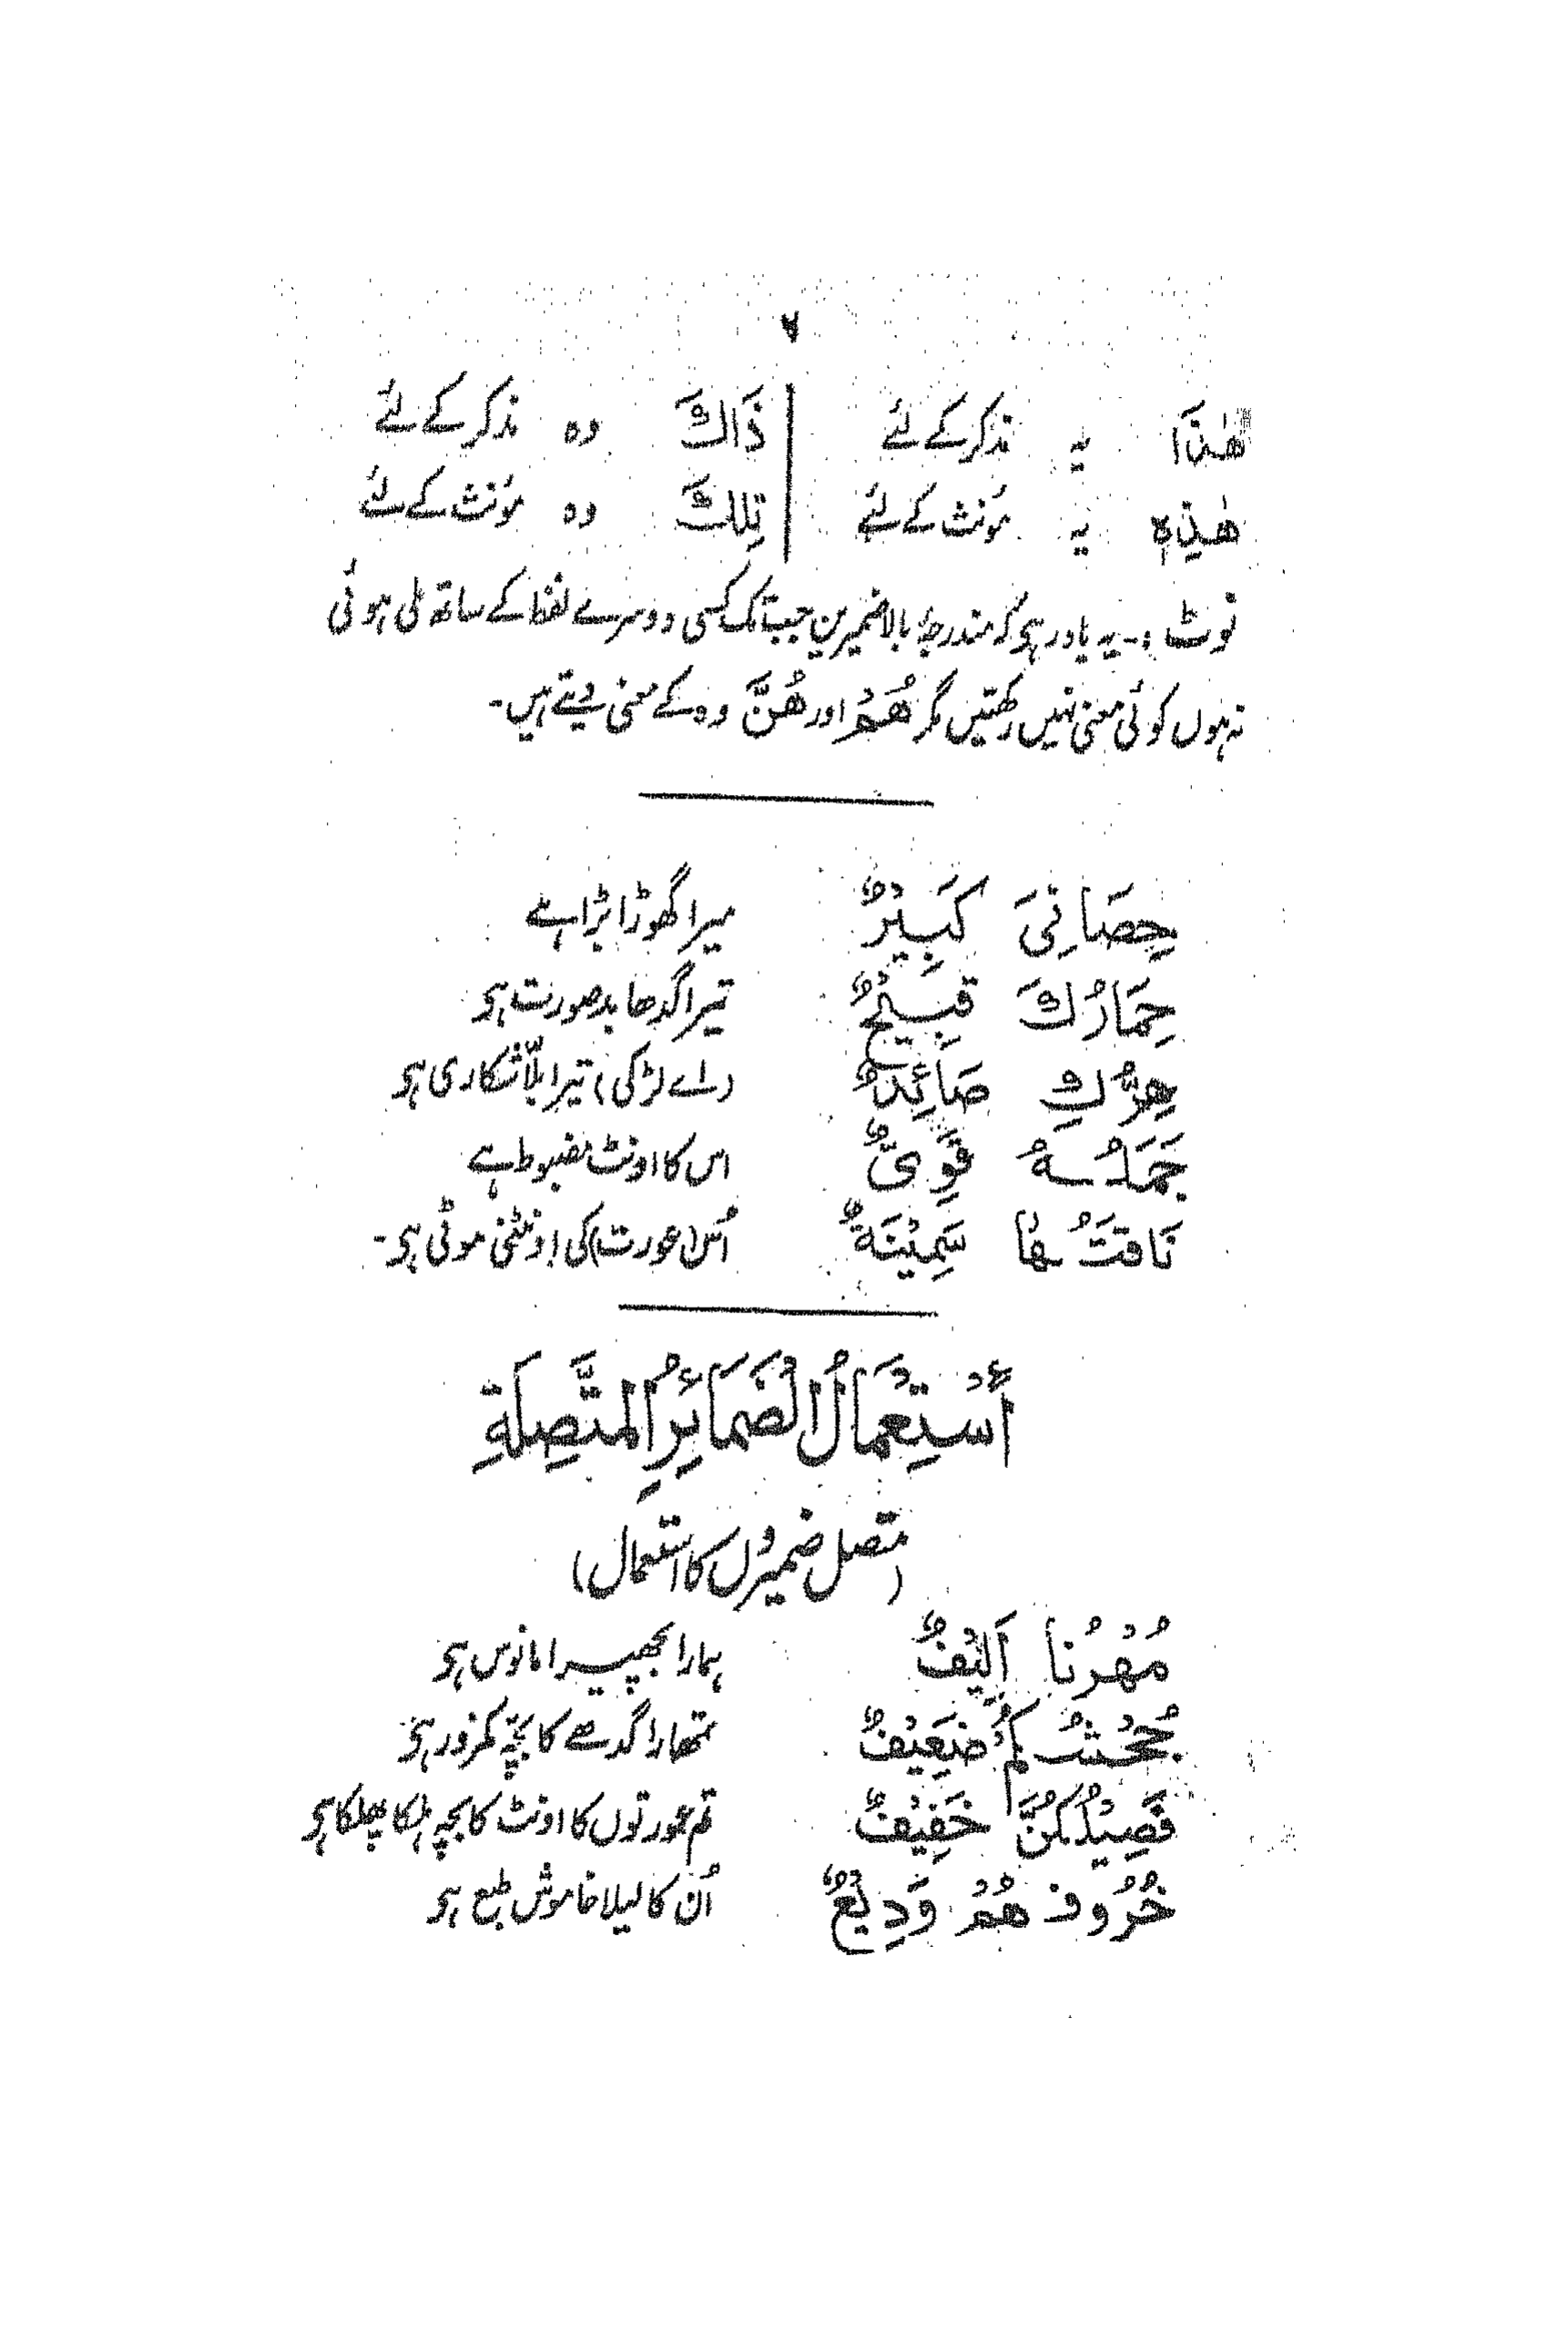 ۷
ھٰذَا یہ مذکر کے لئے | ذَاكَ وہ مذکر کے لئے
ھٰذِہٖ یہ مؤنث کے لئے | تِلْكَ وہ مؤنث کے لئے
نوٹ :- یہ یاد رہی کہ مندرجۂ بالا ضمیرین جب تک کسی دوسرے لفظ کے ساتھ ملی ہوئی
نہ ہوں کوئی معنی نہیں رکھتیں مگر ھُمْ اور ھُنَّ وہ کے معنی دیتے ہیں۔
حِصَانِیَ کَبِیْرٌ میرا گھوڑا بڑا ہے
حِمَارُكَ قَبِیْحٌ تیرا گدھا بدصورت ہی
ھِرُّكِ صَائِدٌ (اے لڑکی) تیرا بلّا شکاری ہی
جَمَلُہُ قَوِیٌّ اس کا اونٹ مضبوط ہے
نَاقَتُھَا سَمِیْنَةٌ اُس (عورت) کی اونٹنی موٹی ہی۔
أسْتِعْمَالُ الضَمَائِرِ المتَّصِلَةِ
(متصل ضمیروں کا استعمال)
مُھْرُنَا اَلِیْفٌ ہمارا بچھیرا مانوس ہی
جُحْشُکُمْ ضَعِیْفٌ تمھارا گدھے کا بچّہ کمزور ہی
فَصِیْلُکُنَّ خَفِیْفٌ تم عورتوں کا اونٹ کا بچہ ہلکا پھلکا ہی
خُرُوفُھُمْ وَدِیْعٌ اُن کا لیلا خاموش طبع ہی